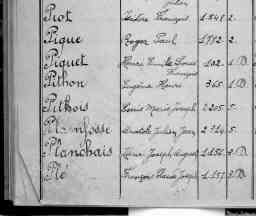 Piot Isidore François 1.548. 2.
Pique Roger Paul 1.792. 2.
Piquet Henri Emile Louis 102. 1.D.
François
Pithon Eugène Henri 365. 1.D.
Pithois Louis Marie Joseph 2205. 5.
Plainfosse Anatole Julien Jean 2.314. 5.
Planchais Joseph August 1.156. 3.D.
Plé François Joseph 1.157. 3.D.